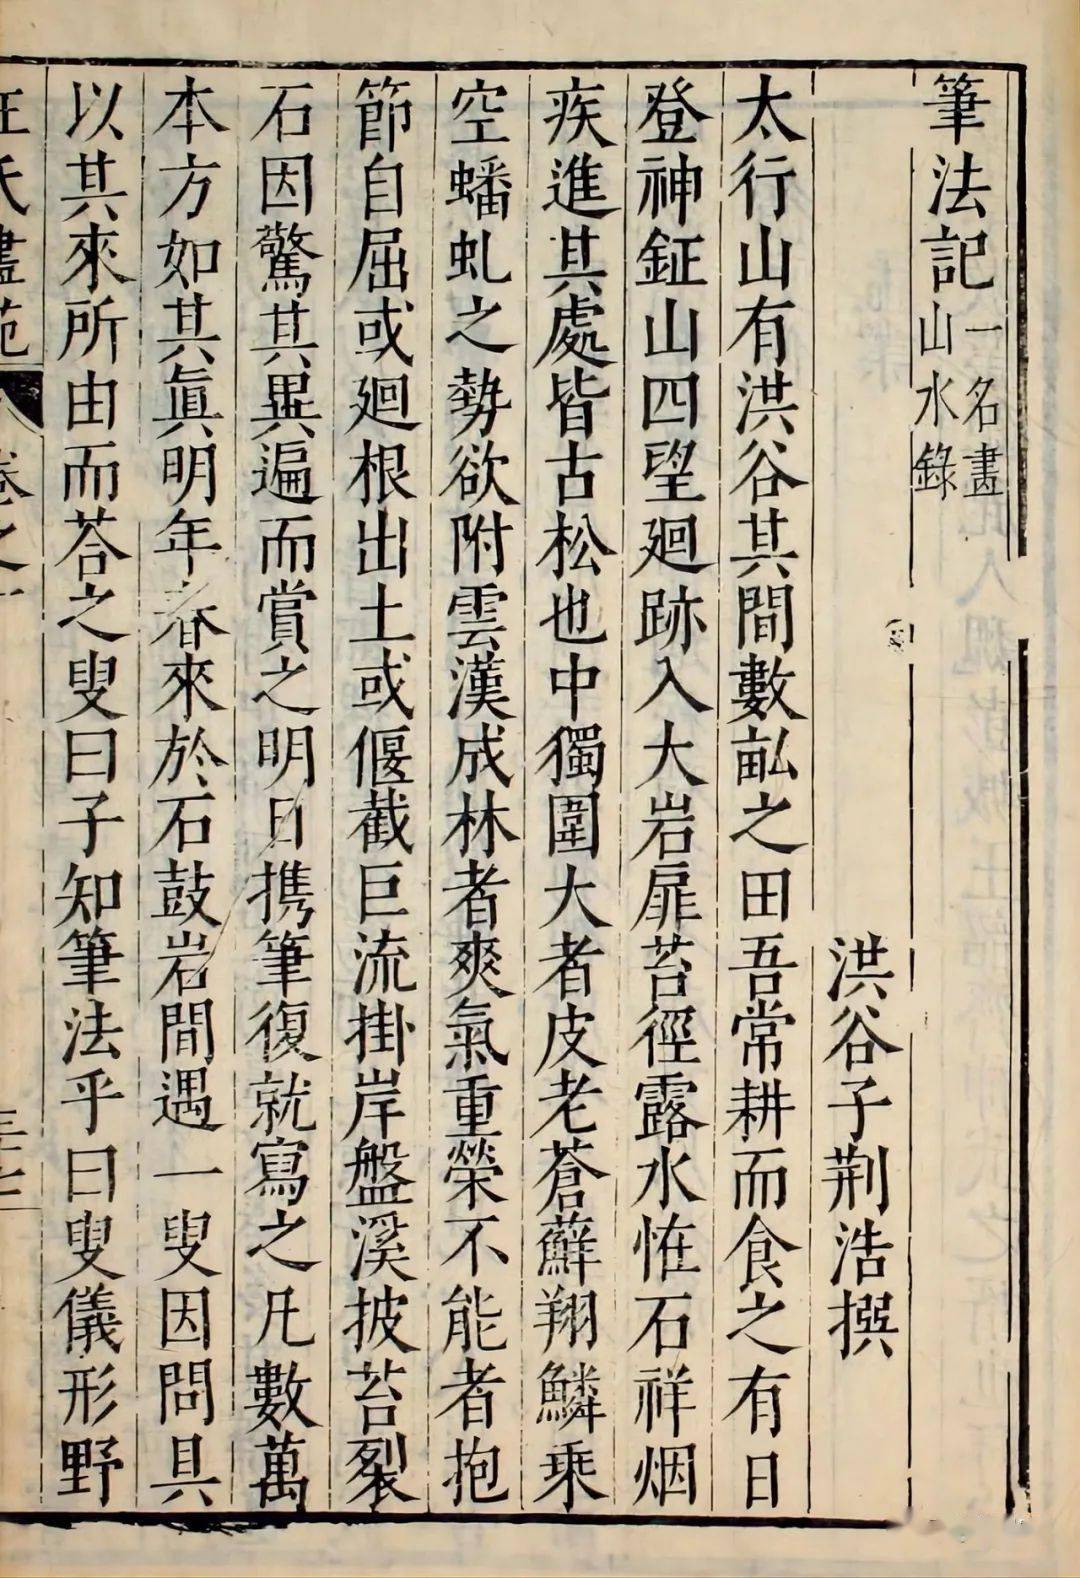 筆法記一名畫山水錄
洪谷子荆浩撰
太行山有洪谷其間數畝之田吾常耕而食之有日
登神鉦山四望廻跡入大岩扉苔徑露水恠石祥烟
疾進其處皆古松也中獨圍大者皮老蒼蘚翔鱗乗
空蟠虬之勢欲附雲漢成林者爽氣重榮不能者抱
節自屈或廻根出土或偃截巨流掛岸盤溪披苔裂
石因驚其異遍而賞之明日携筆復就寫之凡數萬
本方如其眞明年春來於石鼓岩間遇一叟因問具
以其來所由而荅之叟曰子知筆法乎曰叟儀形野
王氏畫苑 卷之